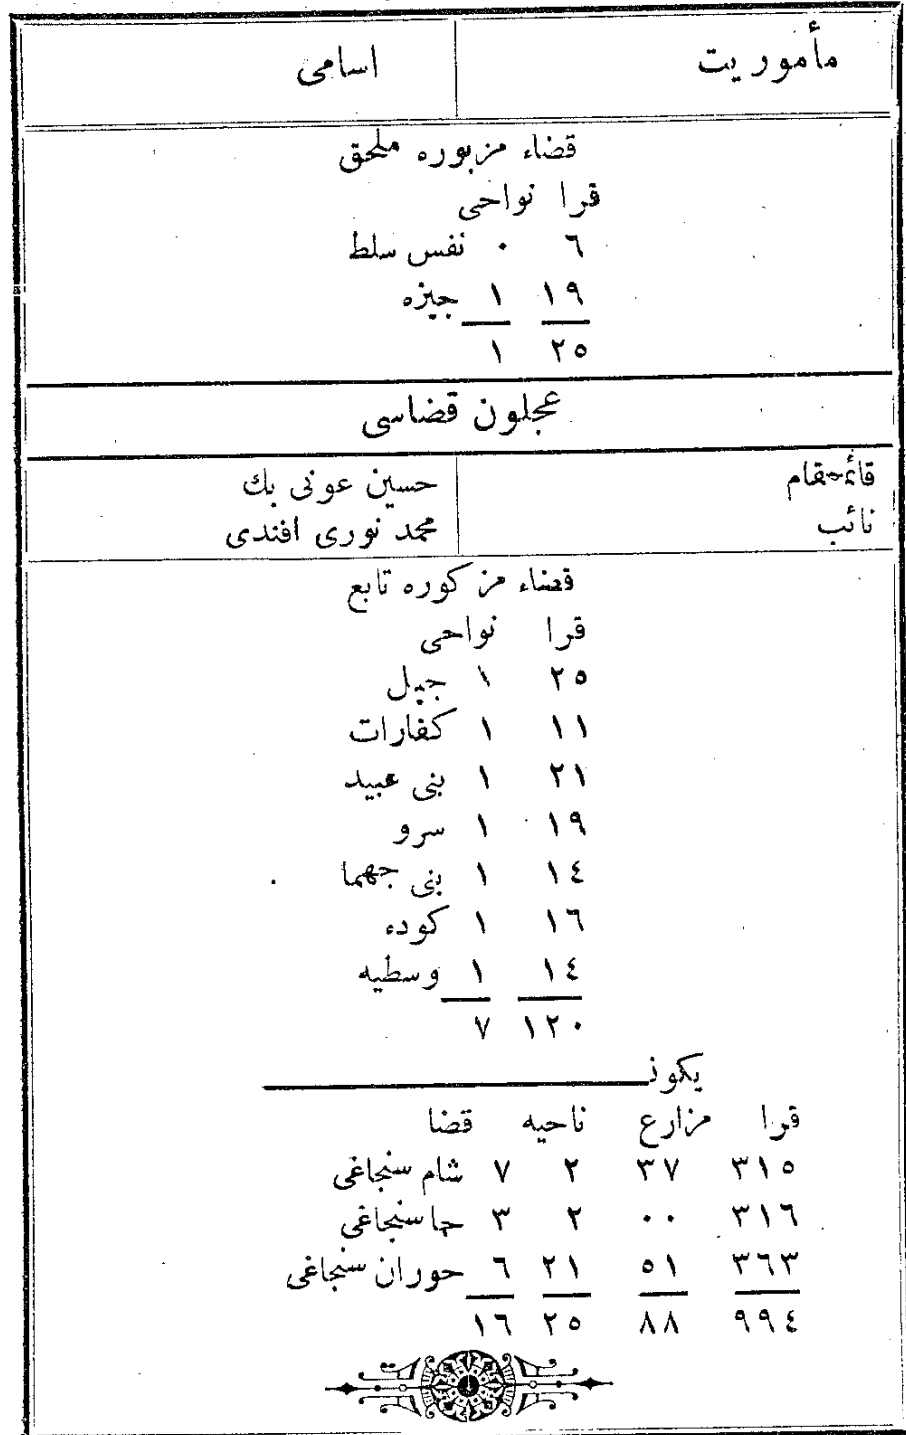 مأموريت اسامى
قضاء مزبوره ملحق
قرا نواحى
٦ ٠ نفس سلط
١٩ ١ جيزه
٢٥ ١
عجلون قضاسى
قائمقام حسين عونى بك
نائب محمد نورى افندى
قضاء مزكوره تابع
قرا نواحى
٢٥ ١ جبل
١١ ١ كفارات
٢١ ١ بنى عبيد
١٩ ١ سرو
١٤ ١ بنى جهما
١٦ ١ كوده
١٤ ١ وسطيه
١٢٠ ٧
يكون
قرا مزارع ناحيه قضا
٣١٥ ٣٧ ٢ ٧ شام سنجاغى
٣١٦ ٠٠ ٢ ٣ حما سنجاغى
٣٦٣ ٥١ ٢١ ٦ حوران سنجاغى
٩٩٤ ٨٨ ٢٥ ١٦